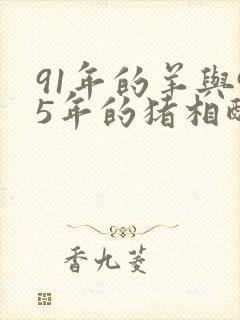 91年的羊與
5年的猪相
香九菱